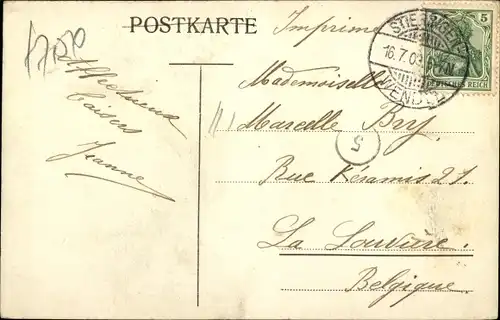 POSTKARTE
Imprimé
5
DEUTSCHES REICH
16.7.09
Affectueux
baisers
Jeanne
Mademoiselle
Marcelle Bry
5
Rue Kéramis 21.
La Louvière.
Belgique